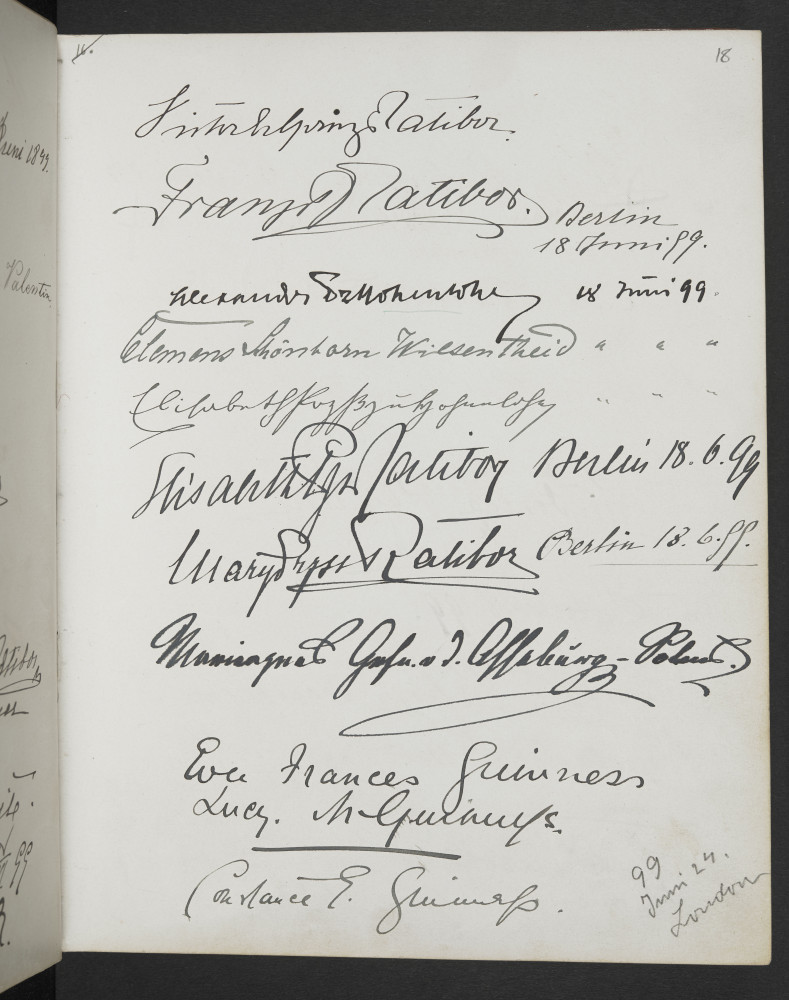 18
Victor E Prinz Ratibor.
Franz Pz Ratibor.
Berlin
18 Juni 99.
Alexander Pz Hohenlohe 18 Juni 99.
Clemens Schönborn Wiesentheid " " "
Elisabeth Pzß zu Hohenlohe " " "
Elisabeth Pzs Ratibor Berlin 18. 6. 99
Mary Pzss Ratibor Berlin 18. 6. 99.
Marieagnes Gfn. v. d. Asseburg-
Eva Frances Guinness
Lucy. M Guinness.
Constance E. Guinness.
99
Juni 24.
London
Juni 1899.
Valentin
Ratibor
99